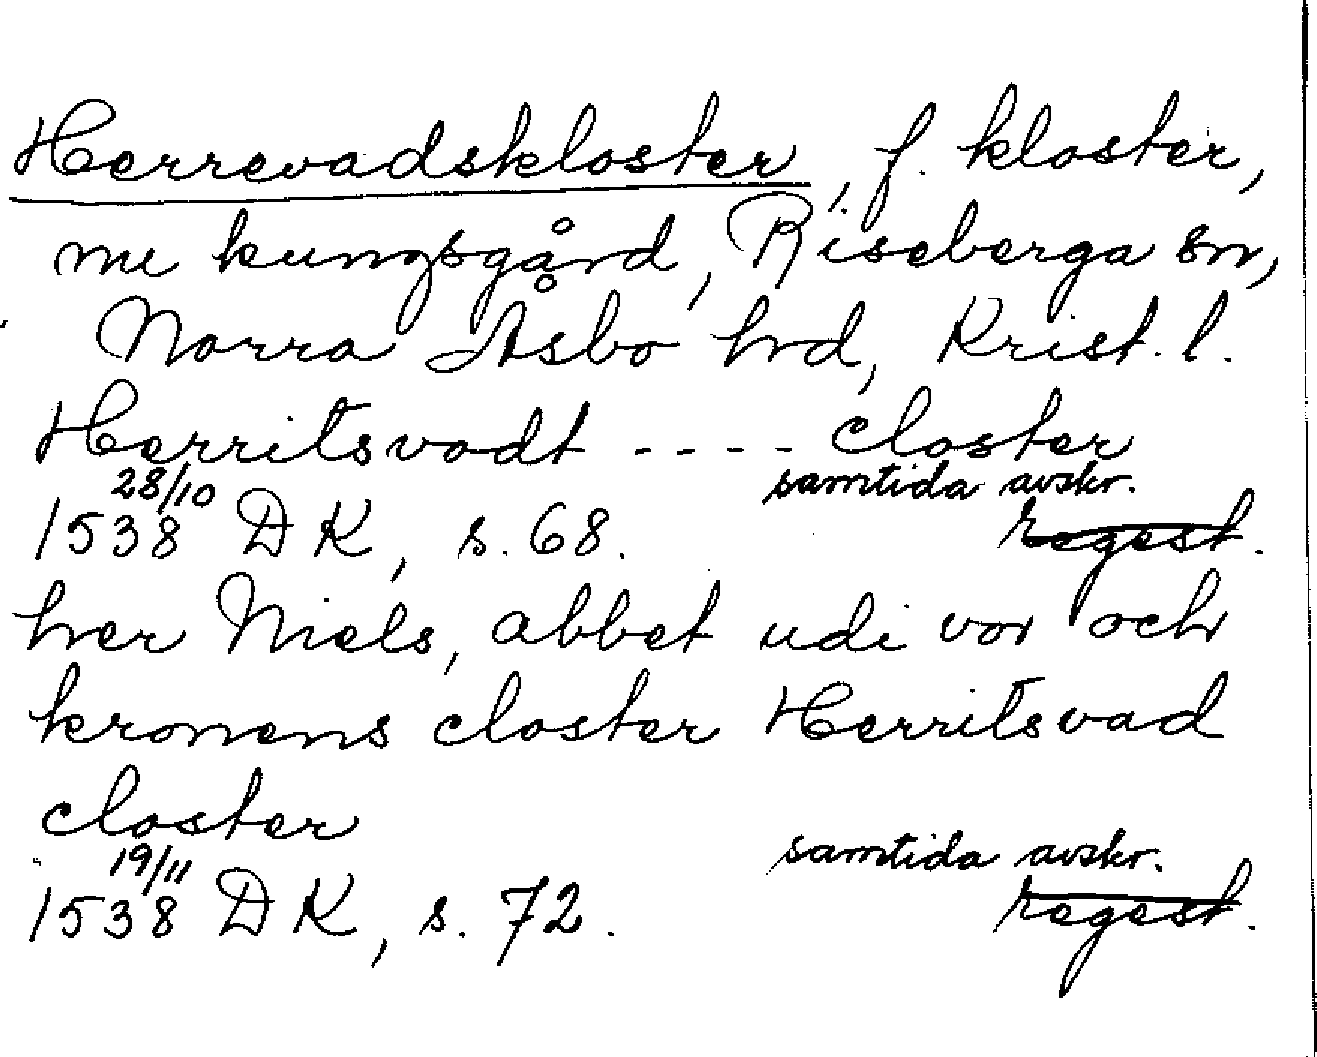 Herrevadskloster, f. kloster,
nu kungsgård, Riseberga sn,
Norra Åsbo hrd, Krist. l.
Herritsvadt - - - - closter
28/10 samtida avskr.
1538 DK, s. 68. regest.
her Niels, abbet udi vor och
kronens closter Herritsvad
closter
19/11 samtida avskr.
1538 DK, s. 72. regest.